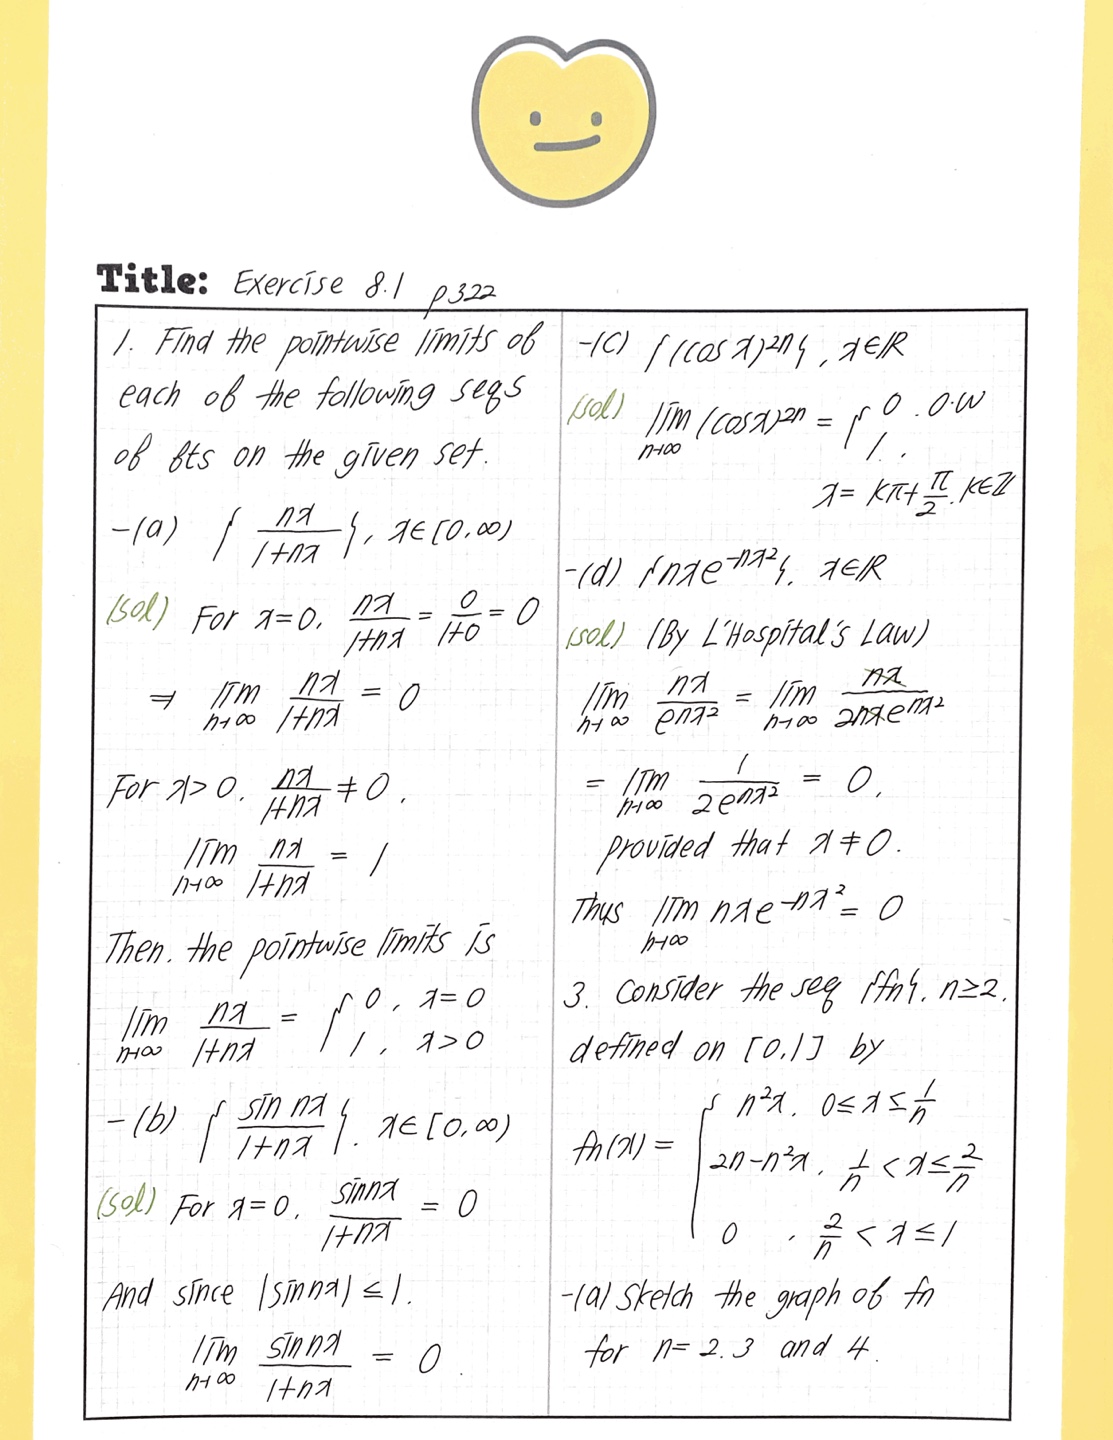 Title: Exercise 8.1 p322
1. Find the pointwise limits of
each of the following seqs
of fts on the given set.
-(a) { nx / 1+nx }, x∈[0,∞)
(sol) For x=0, nx / 1+nx = 0 / 1+0 = 0
⇒ lim n→∞ nx / 1+nx = 0
For x>0, nx / 1+nx ≠ 0,
lim n→∞ nx / 1+nx = 1
Then, the pointwise limits is
lim n→∞ nx / 1+nx = { 0, x=0
1, x>0
-(b) { sin nx / 1+nx }, x∈[0,∞)
(sol) For x=0, sin nx / 1+nx = 0
And since |sin nx| ≤ 1.
lim n→∞ sin nx / 1+nx = 0.
-(c) {(cos x)^2n}, x∈ℝ
(sol) lim n→∞ (cos x)^2n = { 0, o.w
1,
x = kπ+π/2, k∈ℤ
-(d) {nxe^-nx²}, x∈ℝ
(sol) (By L'Hospital's Law)
lim n→∞ nx / e^nx² = lim n→∞ nx / 2nxe^nx²
= lim n→∞ 1 / 2e^nx² = 0,
provided that x≠0.
Thus lim n→∞ nxe^-nx² = 0
3. Consider the seq {fn}, n≥2,
defined on [0,1] by
fn(x) = { n²x, 0≤x≤1/n
2n-n²x, 1/n<x≤2/n
0, 2/n<x≤1
-(a) Sketch the graph of fn
for n=2,3 and 4.